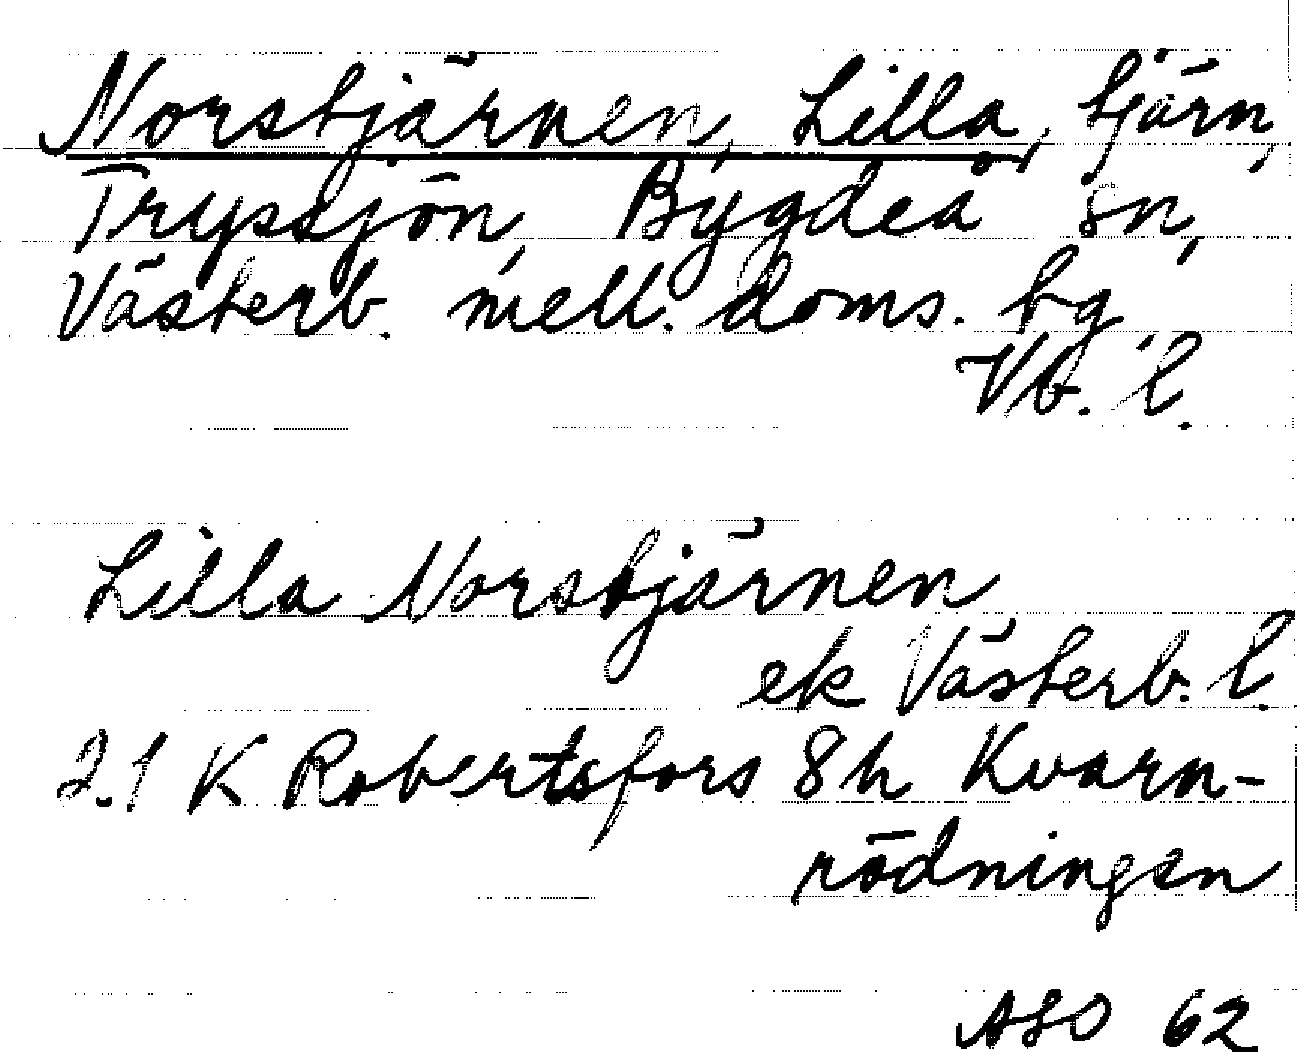 Norstjärnen, Lilla, tjärn,
Tryssjön, Bygdeå sn,
Västerb. mell. doms. tg,
Vb. l.
Lilla Norstjärnen
ek Västerb. l.
21 K Robertsfors 8h Kvarn-
rödningen
ASO 62